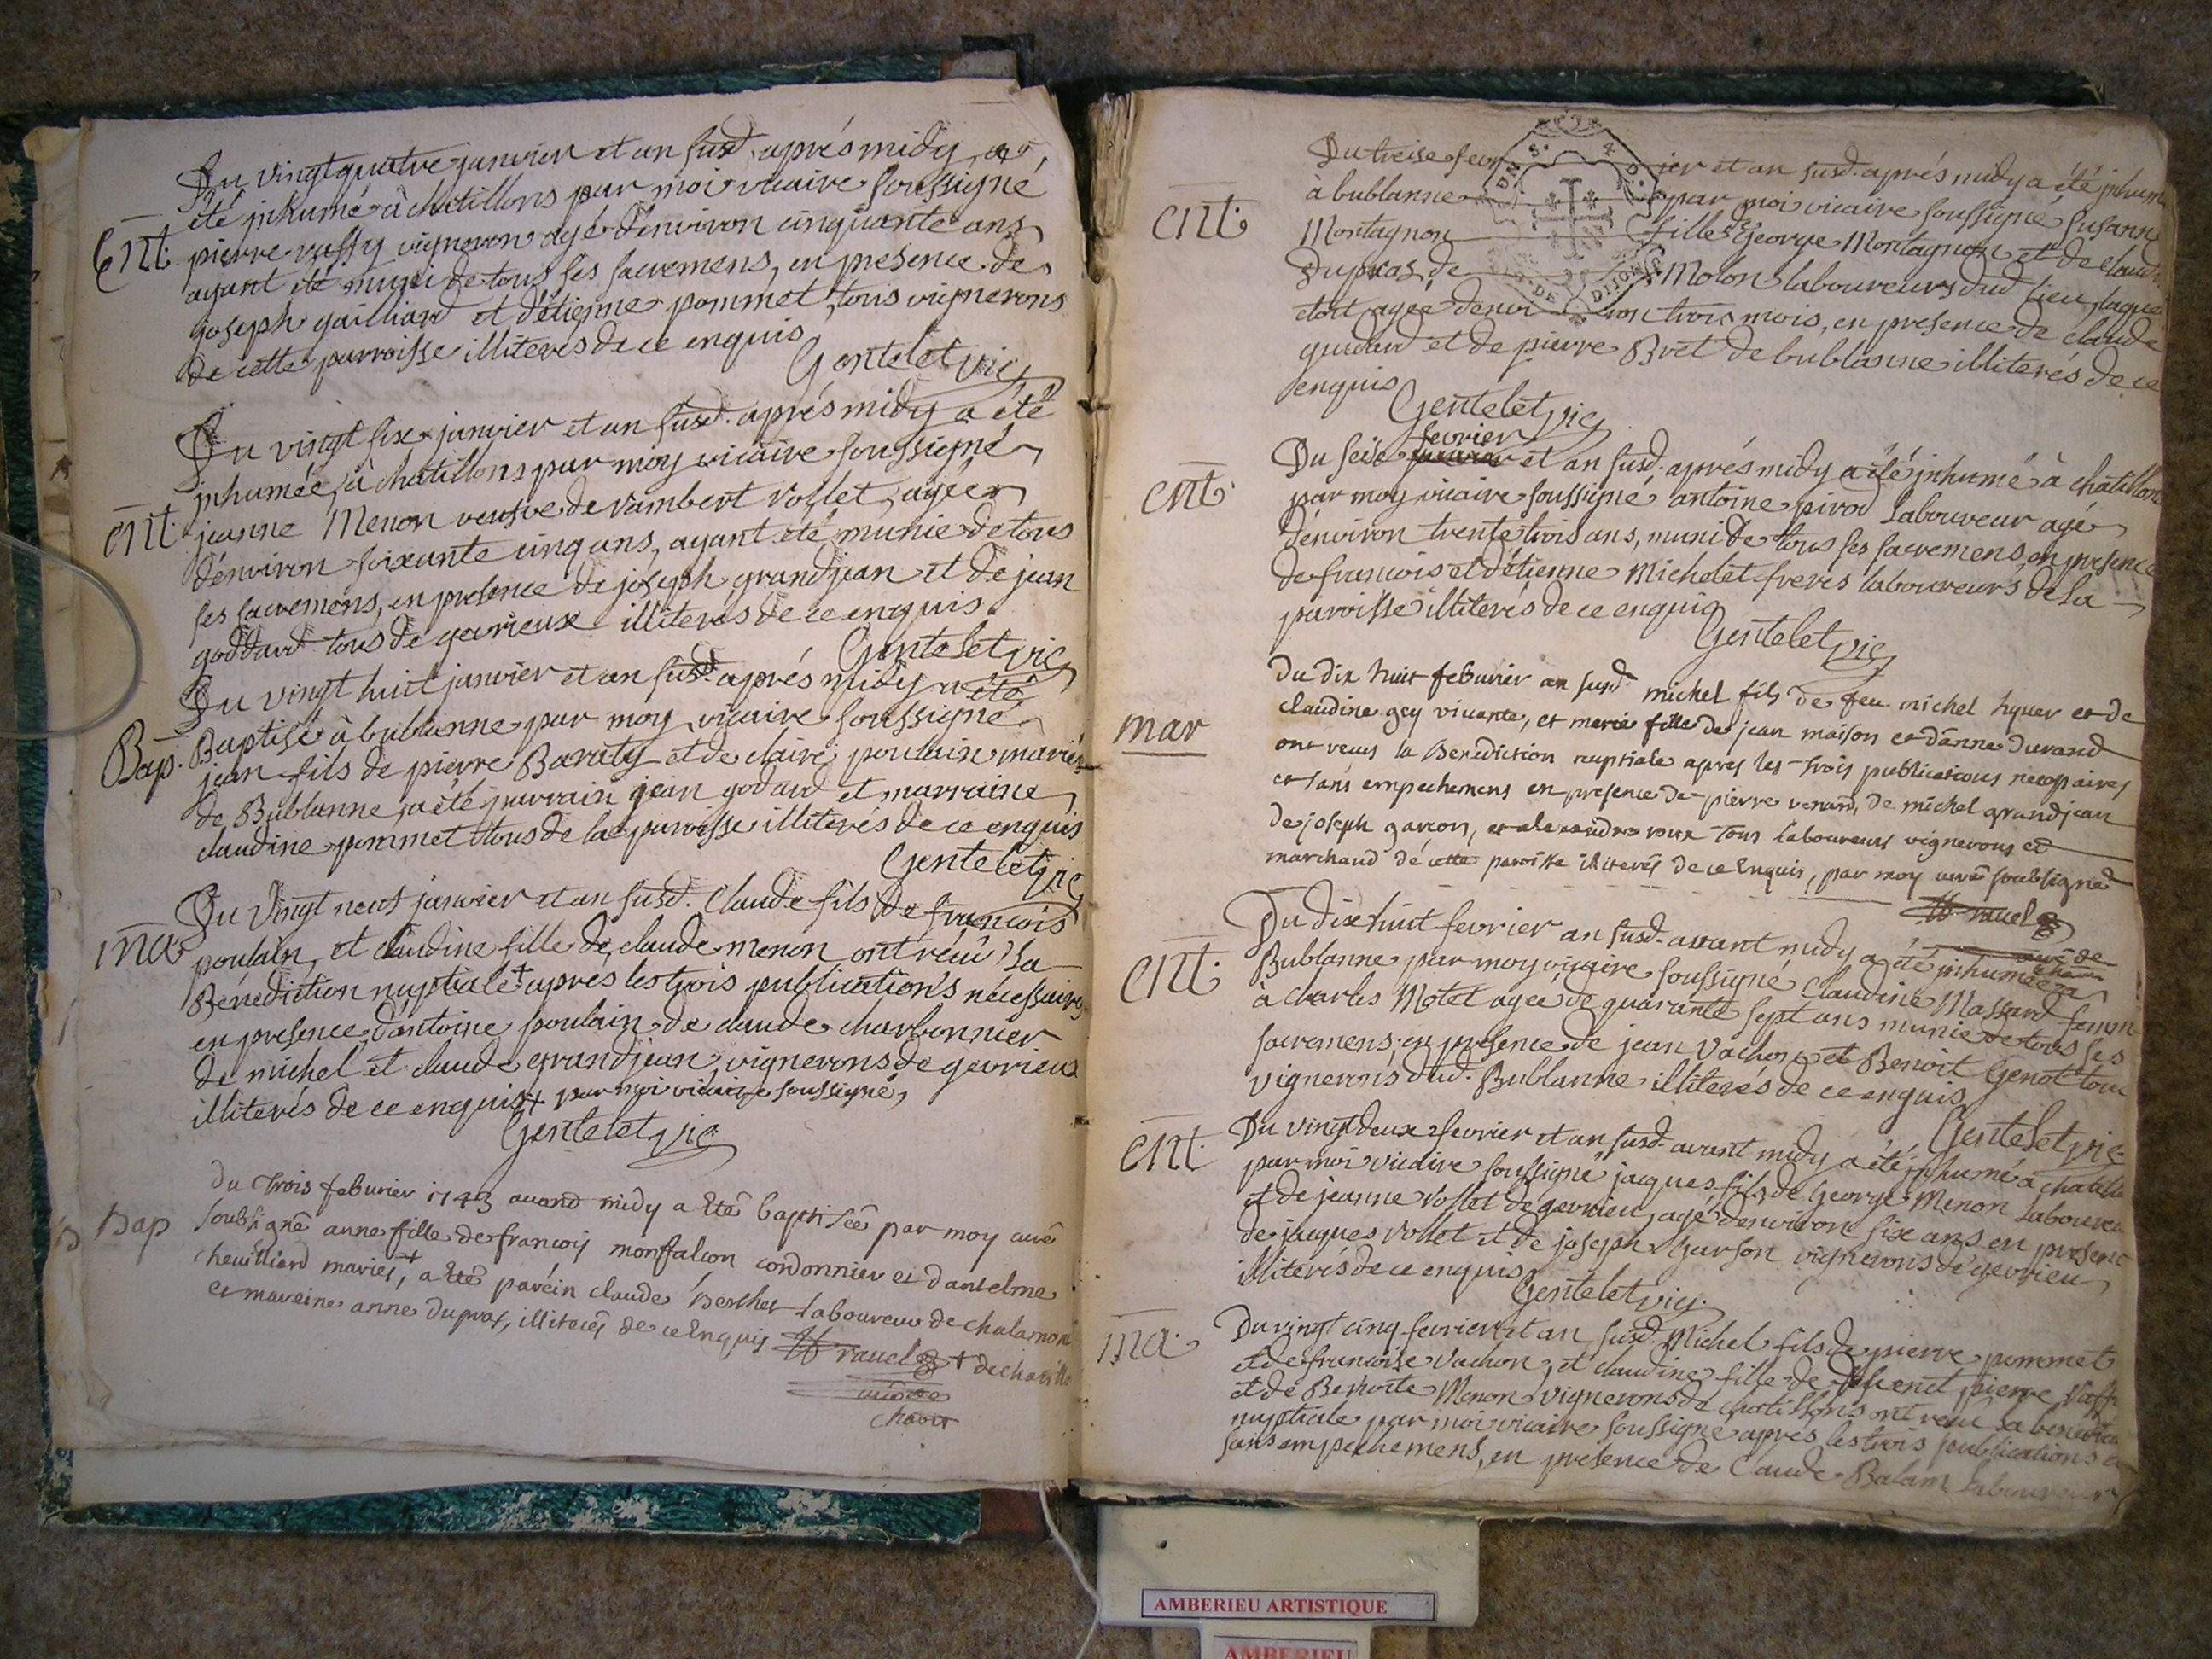 Du vingt quatre janvier et an susd. aprés midy, a
été inhumé à chatillons par moi vicaire soussigné
Ent. pierre vaffy vigneron agé d'environ cinquante ans
ayant été muni de tous ses sacremens, en presence de
joseph gailliard et d'étienne pommet, tous vignerons
de cette parroisse illiterés de ce enquis
Gentelet vic.
Du vingt six janvier et an susd. aprés midy a été
inhumée à chatillons par moy vicaire soussigné
ent. jeanne Menon veufve de rambert vollet, agée
d'environ soixante cinq ans, ayant été munie de tous
ses sacremens, en presence de joseph grandjean et de jean
goddard tous de gevrieux illiterés de ce enquis.
Gentelet vic.
Du vingt huit janvier et an susd. aprés midy a été
Bap. Baptisé à bublanne par moy vicaire soussigné
jean fils de pierre Baraty et de claire poulain mariés
de Bublanne, a été parrain jean godard et marraine
claudine pommet tous de la paroisse illiterés de ce enquis
Gentelet vic
Du vingt neuf janvier et an susd. Claude fils de francois
ma. poulain, et claudine fille de claude menon ont reçû la
Bénediction nuptiale + aprés les trois publications nécessaires
en presence d'antoine poulain de claude charbonnier
de michel et claude grandjean vignerons de gevrieux
illiterés de ce enquis + par moi vicaire soussigné,
Gentelet vic.
du trois feburier 1743 auand midy a été baptisée par moy curé
Bap soubsigné anne fille de francois monfalcon cordonnier et d'antelme
cheuilliard mariés +, a été parein claude Berthet laboureur de chalamon
et mareine anne dupras, illiterés de ce enquis rauel + de chatillo
curé de
chaton
Du treise fevrier et an susd. aprés midy a été inhum
ent. à bublanne par moi vicaire soussigné susanne
Montagnon fille de George Montagnon et de claud
Dupras de Molon laboureurs dud. lieu, laque
étoit agée d'environ trois mois, en presence de claude
guidard et de pierre Bret de bublanne illiterés de ce
enquis
Gentelet vic
fevrier
Du seise et an susd. aprés midy a été inhumé à chatillon
ent. par moy vicaire soussigné antoine pirod Laboureur agé
d'environ trente trois ans, muni de tous ses sacremens, en presence
de francois et d'étienne Michelet freres laboureurs de la
paroisse illiterés de ce enquis
Gentelet vic
du dix huit feburier an susd. michel fils de feu michel hyuer et de
mar claudine gey viuante, et marie fille de jean maison et d'anne durand
ont receus la Benediction nuptiale apres les trois publications necessaires
et sans empechemens en presence de pierre renard, de michel grandjean
de joseph garcon, et alexandre roux tous laboureurs vignerons et
marchand de cette paroisse illiterés de ce enquis, par moy curé soubsigné
rauel
curé de
Du dix huit fevrier an susd. avant midy a été inhumée à
ent. Bublanne par moy vicaire soussigné Claudine Massard femm
à Charles Motet agée de quarante sept ans munie de tous ses
sacremens, en presence de jean Vachon et Benoit Genot tous
vignerons dud. Bublanne illiterés de ce enquis
Gentelet vic.
Du vingt deux fevrier et an susd. avant midy a été inhumé à chatillo
ent. par moi vicaire soussigné jacques fils de George Menon laboureu
et de jeanne vollet de gevrieu, agé d'environ six ans en presenc
de jacques vollet et de joseph Garson vignerons de gevrieu
illiterés de ce enquis
Gentelet vic.
Du vingt cinq fevrier et an susd. Michel fils de pierre pommet
ma. et de francoise vachon, et claudine fille de pierre vaff
et de Benoite Menon vignerons de chatillons ont recu la benedic
nuptiale par moi vicaire soussigné aprés les trois publications
sans empechemens, en présence de Claude Balam laboureur
AMBERIEU ARTISTIQUE
AMBERIEU